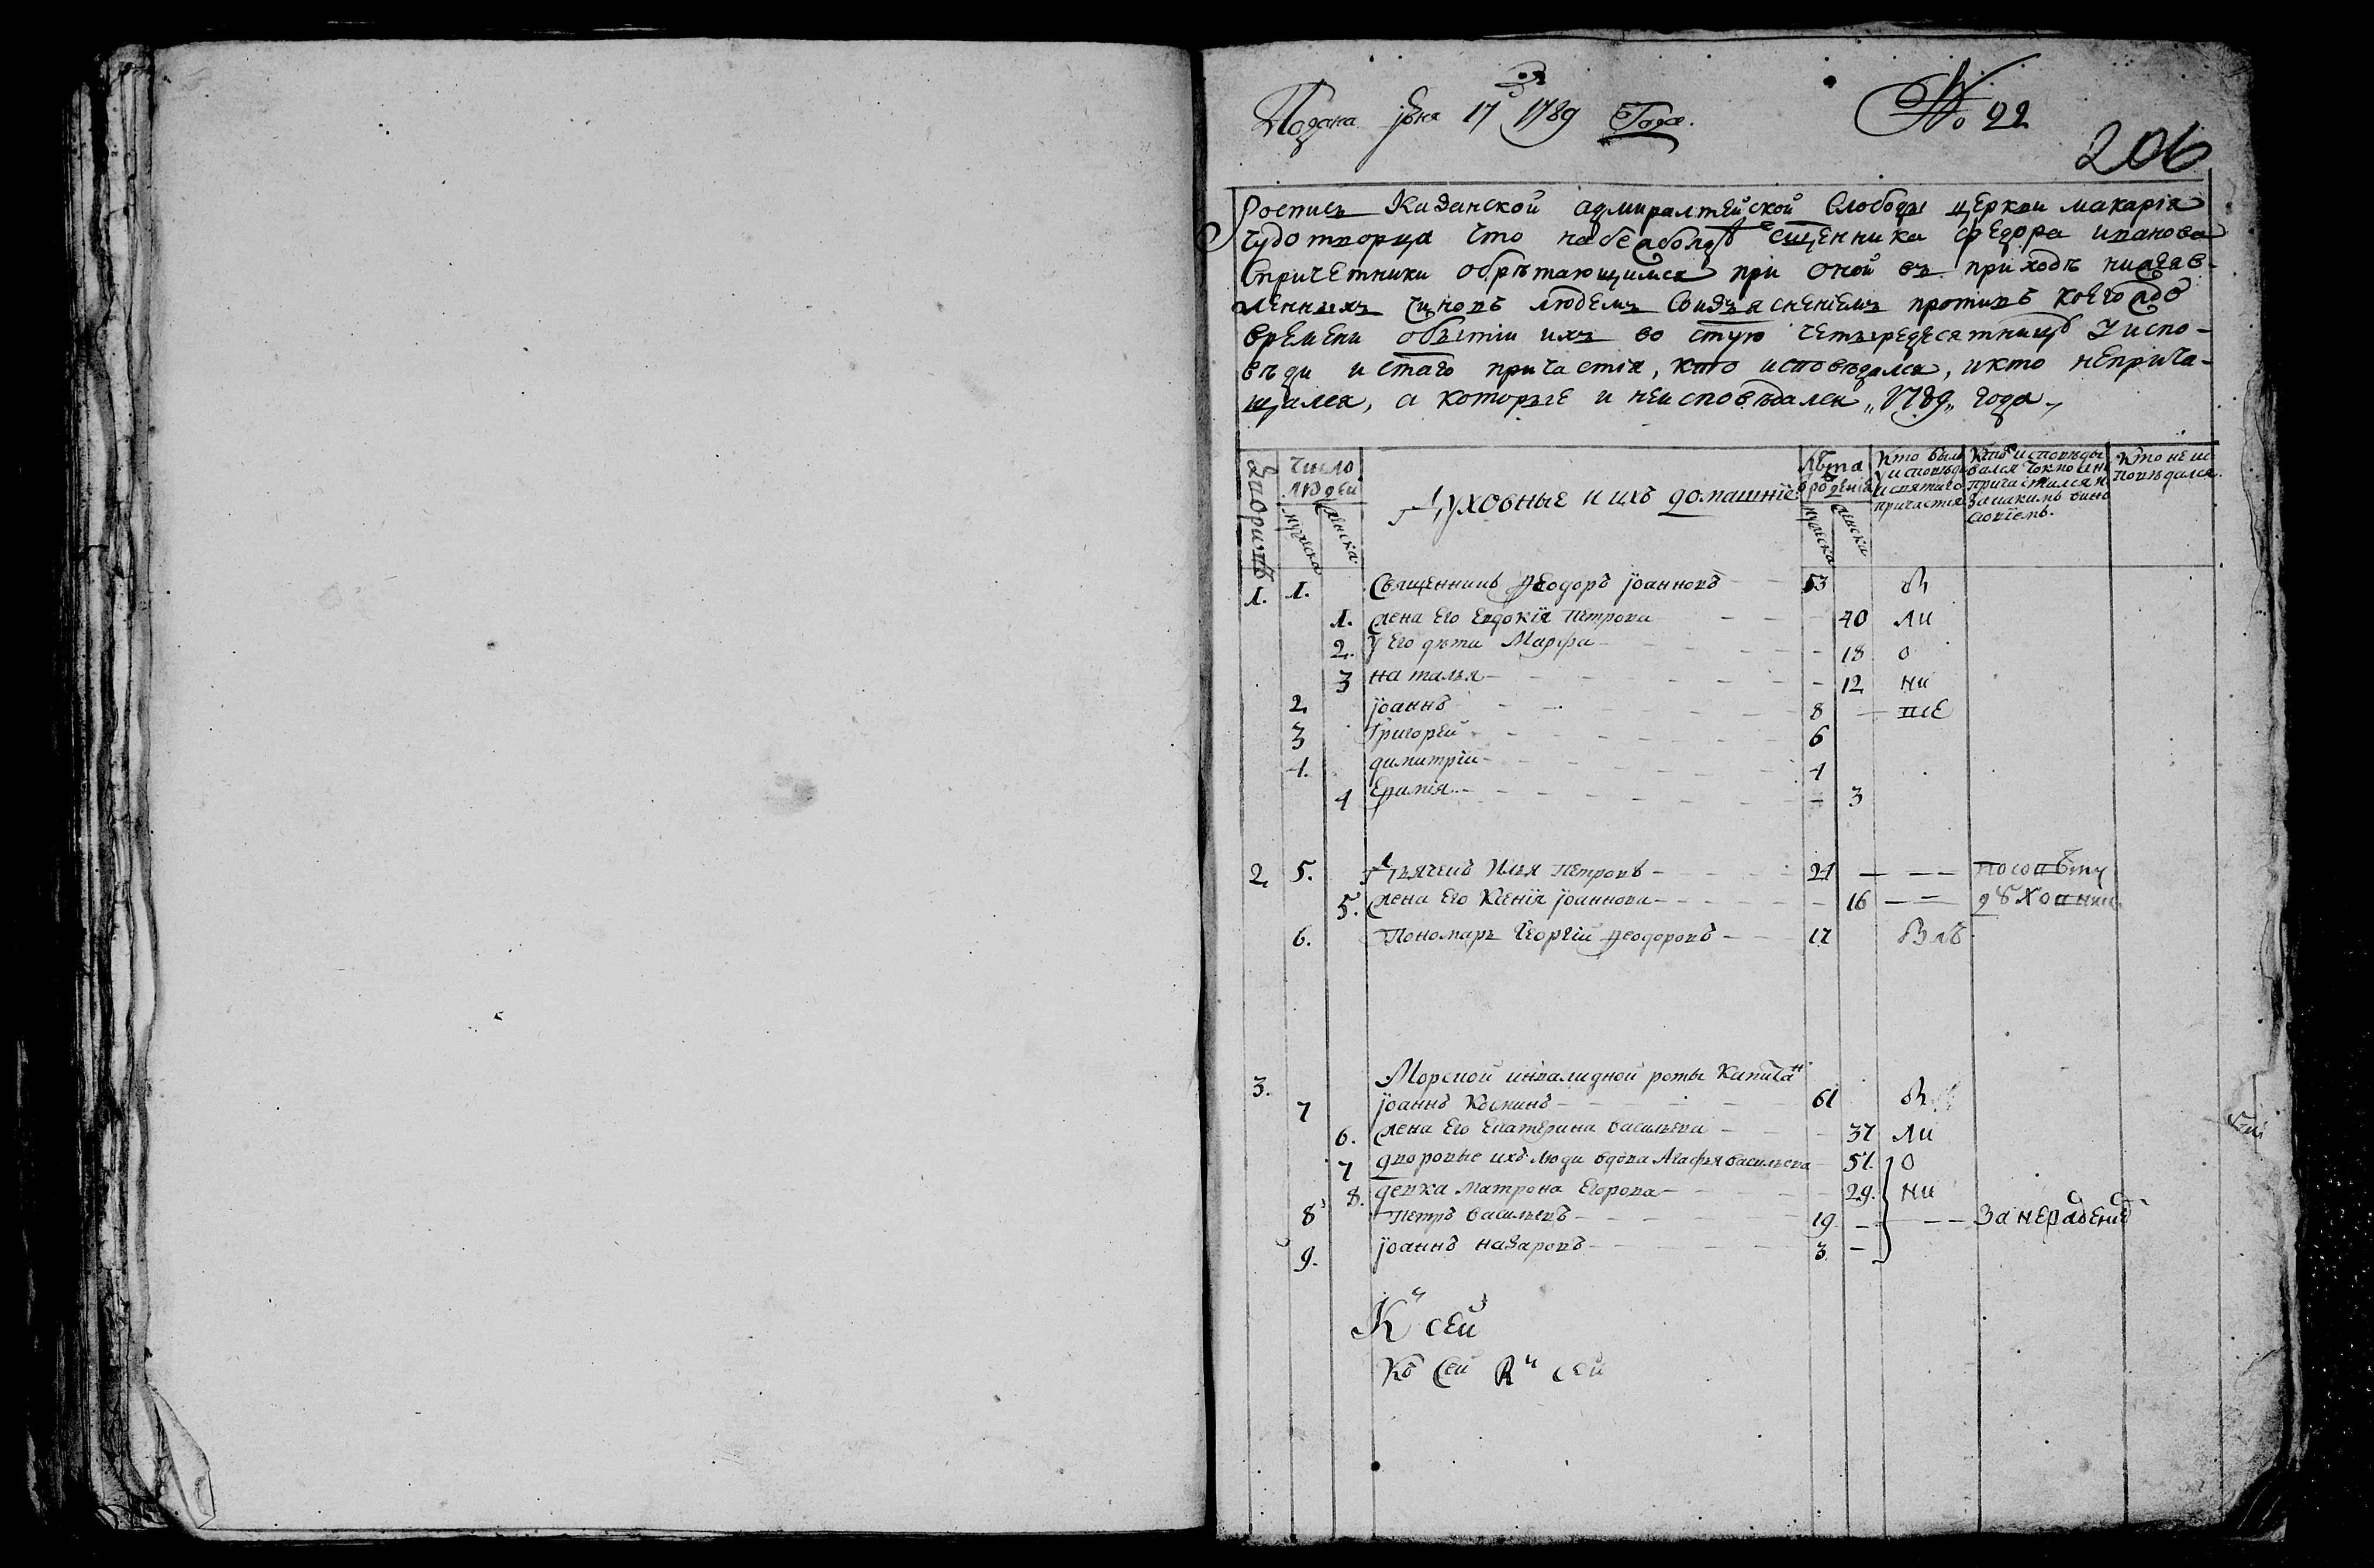 Подана Іюня 17 1789 Года.
№ 22
206
Роспись Казанской адмиралтейской Слободы церкви макарія
чудотворца что на священника федора иванова
Спричетники обрѣтающимся при оной въ приходѣ нижеяв-
ленныхъ чиновъ людемъ Сызъясненіемъ противъ коегождо
времени обытіи ихъ во стую четыредесятницу у испо-
вѣди и стаго причастія, кто исповѣдался, икто неприча-
щался, а которые и неисповѣдался „1789„ года,
Число людей
мужеска
женска
Духовные и ихъ домашніе.
Лѣта рожденія
мужеска
женска
Кто были у исповѣди и святаго причастія
Кто исповѣды вался токмо ине причастился и закакимъ винословіемъ.
Кто не исповѣдался.
1. 1. Священникъ Ѳеодоръ Іоанновъ 53
1. жена Его Евдокія Петрова 40 ли
2. у Его дѣти Марфа 18 о
3 наталья 12 ни
2 Іоаннъ 8 ше
3 Григорей 6
4. димитрій 4
4 3
2 5. Дьячекъ Илья Петровъ 24 посовѣту
5. жена Его Ксенія Іоаннова 16 духовнии
6. Пономарь Георгій Ѳеодоровъ 17
3. Морской инвалидной роты Капитанъ
7 Іоаннъ Косминъ 61
6. жена Его Екатерина васильева 37 ли
7 дворовые ихъ люди вдова Агафья васильева 57. о
8. девка матрона Егорова 29. ни
8 Петръ васильевъ 19 За нерадение
9. Іоаннъ назаровъ 3
К сей
Къ Сей К сей